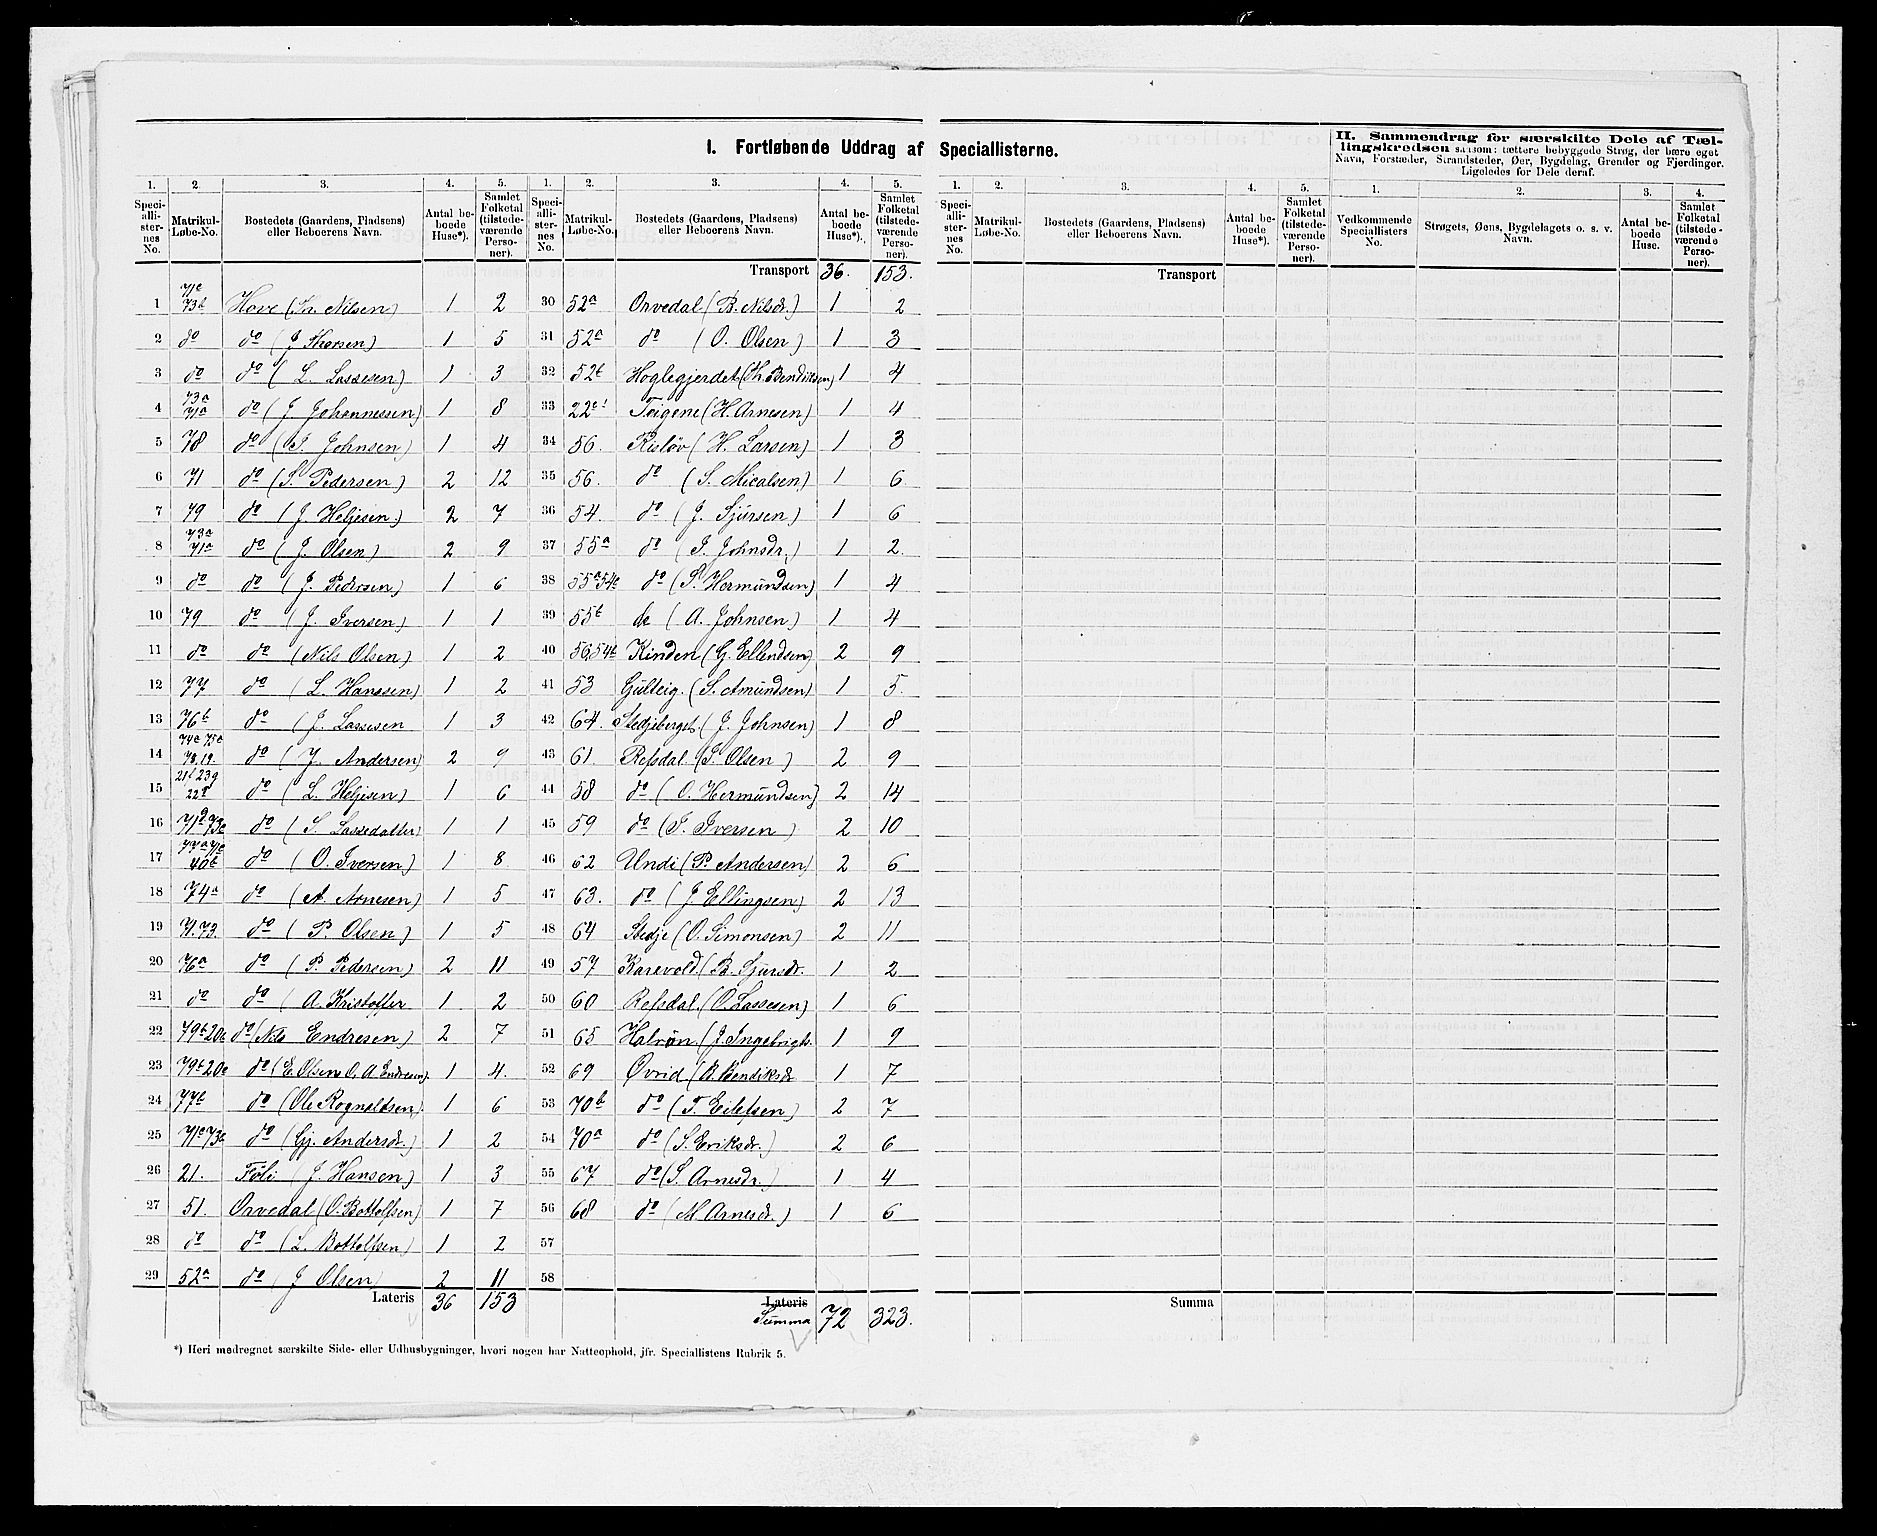 I. Fortløbende Uddrag af Speciallisterne.
II. Sammendrag for særskilte Dele af Tællingskredsen saasom: tættere bebyggede Strøg, der bære eget Navn, Forstæder, Strandsteder, Øer, Bygdelag, Grender og Fjerdinger. Ligeledes for Dele deraf.
1. 2. 3. 4. 5. 1. 2. 3. 4. 5. 1. 2. 3. 4. 5. 1. 2. 3. 4.
Speciallisternes No. Matrikul-Løbe-No. Bostedets (Gaardens, Pladsens) eller Beboerens Navn. Antal beboede Huse*). Samlet Folketal (tilstedeværende Personer).
Speciallisternes No. Matrikul-Løbe-No. Bostedets (Gaardens, Pladsens) eller Beboerens Navn. Antal beboede Huse*). Samlet Folketal (tilstedeværende Personer).
Speciallisternes No. Matrikul-Løbe-No. Bostedets (Gaardens, Pladsens) eller Beboerens Navn. Antal beboede Huse*). Samlet Folketal (tilstedeværende Personer).
Vedkommende Speciallisters No. Strøgets, Øens, Bygdelagets o. s. v. Navn. Antal beboede Huse. Samlet Folketal (tilstedeværende Personer).
Transport 36. 153.
Transport
1 71c 73b Hove (Nilsen) 1 2
2 do do (J Thorsen) 1 5
3 do do (L. Lassesen) 1 3
4 73a 71a do (J Johannessen) 1 8
5 78 do (Johnsen) 1 4
6 71 do (S. Pedersen) 2 12
7 79 do (J. Heljesen) 2 7
8 73a 71a do (J. Olsen) 2 9
9 do do (J. Pedersen) 1 6
10 79 do (J. Iversen) 1 1
11 do do (Nils Olsen) 1 2
12 77 do (L. Hanssen) 1 2
13 76b do (J. Lassesen 1 3
14 74c 75c 78.19. do (J. Andersen) 2 9
15 21 23g 22 do (L. Heljesen) 1 6
16 71d 73c do (S. Lassedatter) 1 1
17 40b do (O. Iversen) 1 8
18 74a do (A. Arnesen) 1 5
19 71.73. do (P. Olsen) 1 5
20 76a do (P. Pedersen) 2 11
21 do do (A. Kristoffer 1 2
22 79b 20 do (Nils Endresen) 2 7
23 79b 20 do (E. Olsen O. A. Endresen) 1 4.
24 77b do (Ole Rognaldsen) 1 6
25 71c 73 do (Gj. Andersdr.) 1 2
26 21. Føli (J. Hansen) 1 3
27 51. Orvedal (O. Bottolfsen) 1 7
28 do do (L. Bottolfsen) 1 2
29 52a do (J Olsen) 2 11
Lateris 36 153
30 52a Orvedal (B. Nilsdr.) 1 2
31 52a do (O. Olsen) 1 3
32 52b Hoglegjerdet (Th. Bendiksen) 1 4
33 22 Teigene (H. Arnesen) 1 4
34 56. Risløv (H. Larsen) 1 3
35 56. do (S. Micalsen) 1 6
36 54. do (J. Sjursen) 1 6
37 55a do (Johnsdr.) 1 2.
38 55a 54c do (P. Hermundsen) 1 4
39 55b do (A. Johnsen) 1 4
40 56 54b Kinden (G. Ellendsen) 2 9
41 53 Gulteig. (S. Amundsen) 1 5.
42 64. Stedjeberget. (J. Johnsen) 1 8
43 61. Refsdal. (Olsen) 2 9
44 58 do (O. Hermundsen) 2 14
45 59 do (Iversen) 2 10
46 62 Undi (P. Andersen) 2 6
47 63. do (J Ellingsen) 2 13
48 64 Stedje (O. Simonsen) 2 11
49 57 Karevold. (B. Sjursdr. 1 2
50 60 Refsdal. (O. Lassesen) 1 6
51 65 Halrøn. (J. Ingebrigts. 1 9
52 69 Øvrid (B. Bendiksdr 1 7
53 70b do (T. Eilefsen) 2 7
54 70a do (S. Eriksdr.) 2 6
55 67 do (S. Arnesdr.) 1 4
56 68 do (M Arnesdr.) 1 6
57
58
Lateris
Summa 72 323.
Summa
*) Heri medregnet særskilte Side- eller Udhusbygninger, hvori nogen har Natteophold, jfr. Speciallistens Rubrik 5.